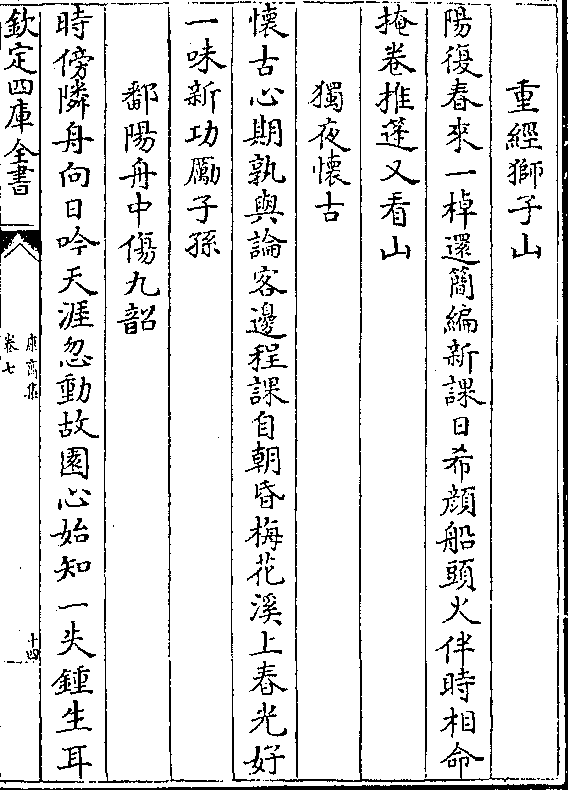 重經獅子山
陽復春來一棹還簡編新課日希顔船頭火伴時相命
掩卷推篷又看山
獨夜懷古
懷古心期孰與論客邊程課自朝昏梅花溪上春光好
一味新功勵子孫
鄱陽舟中傷九韶
時傍隣舟向日吟天涯忽動故園心始知一失鍾生耳
欽定四庫全書
康齋集
卷七
十四